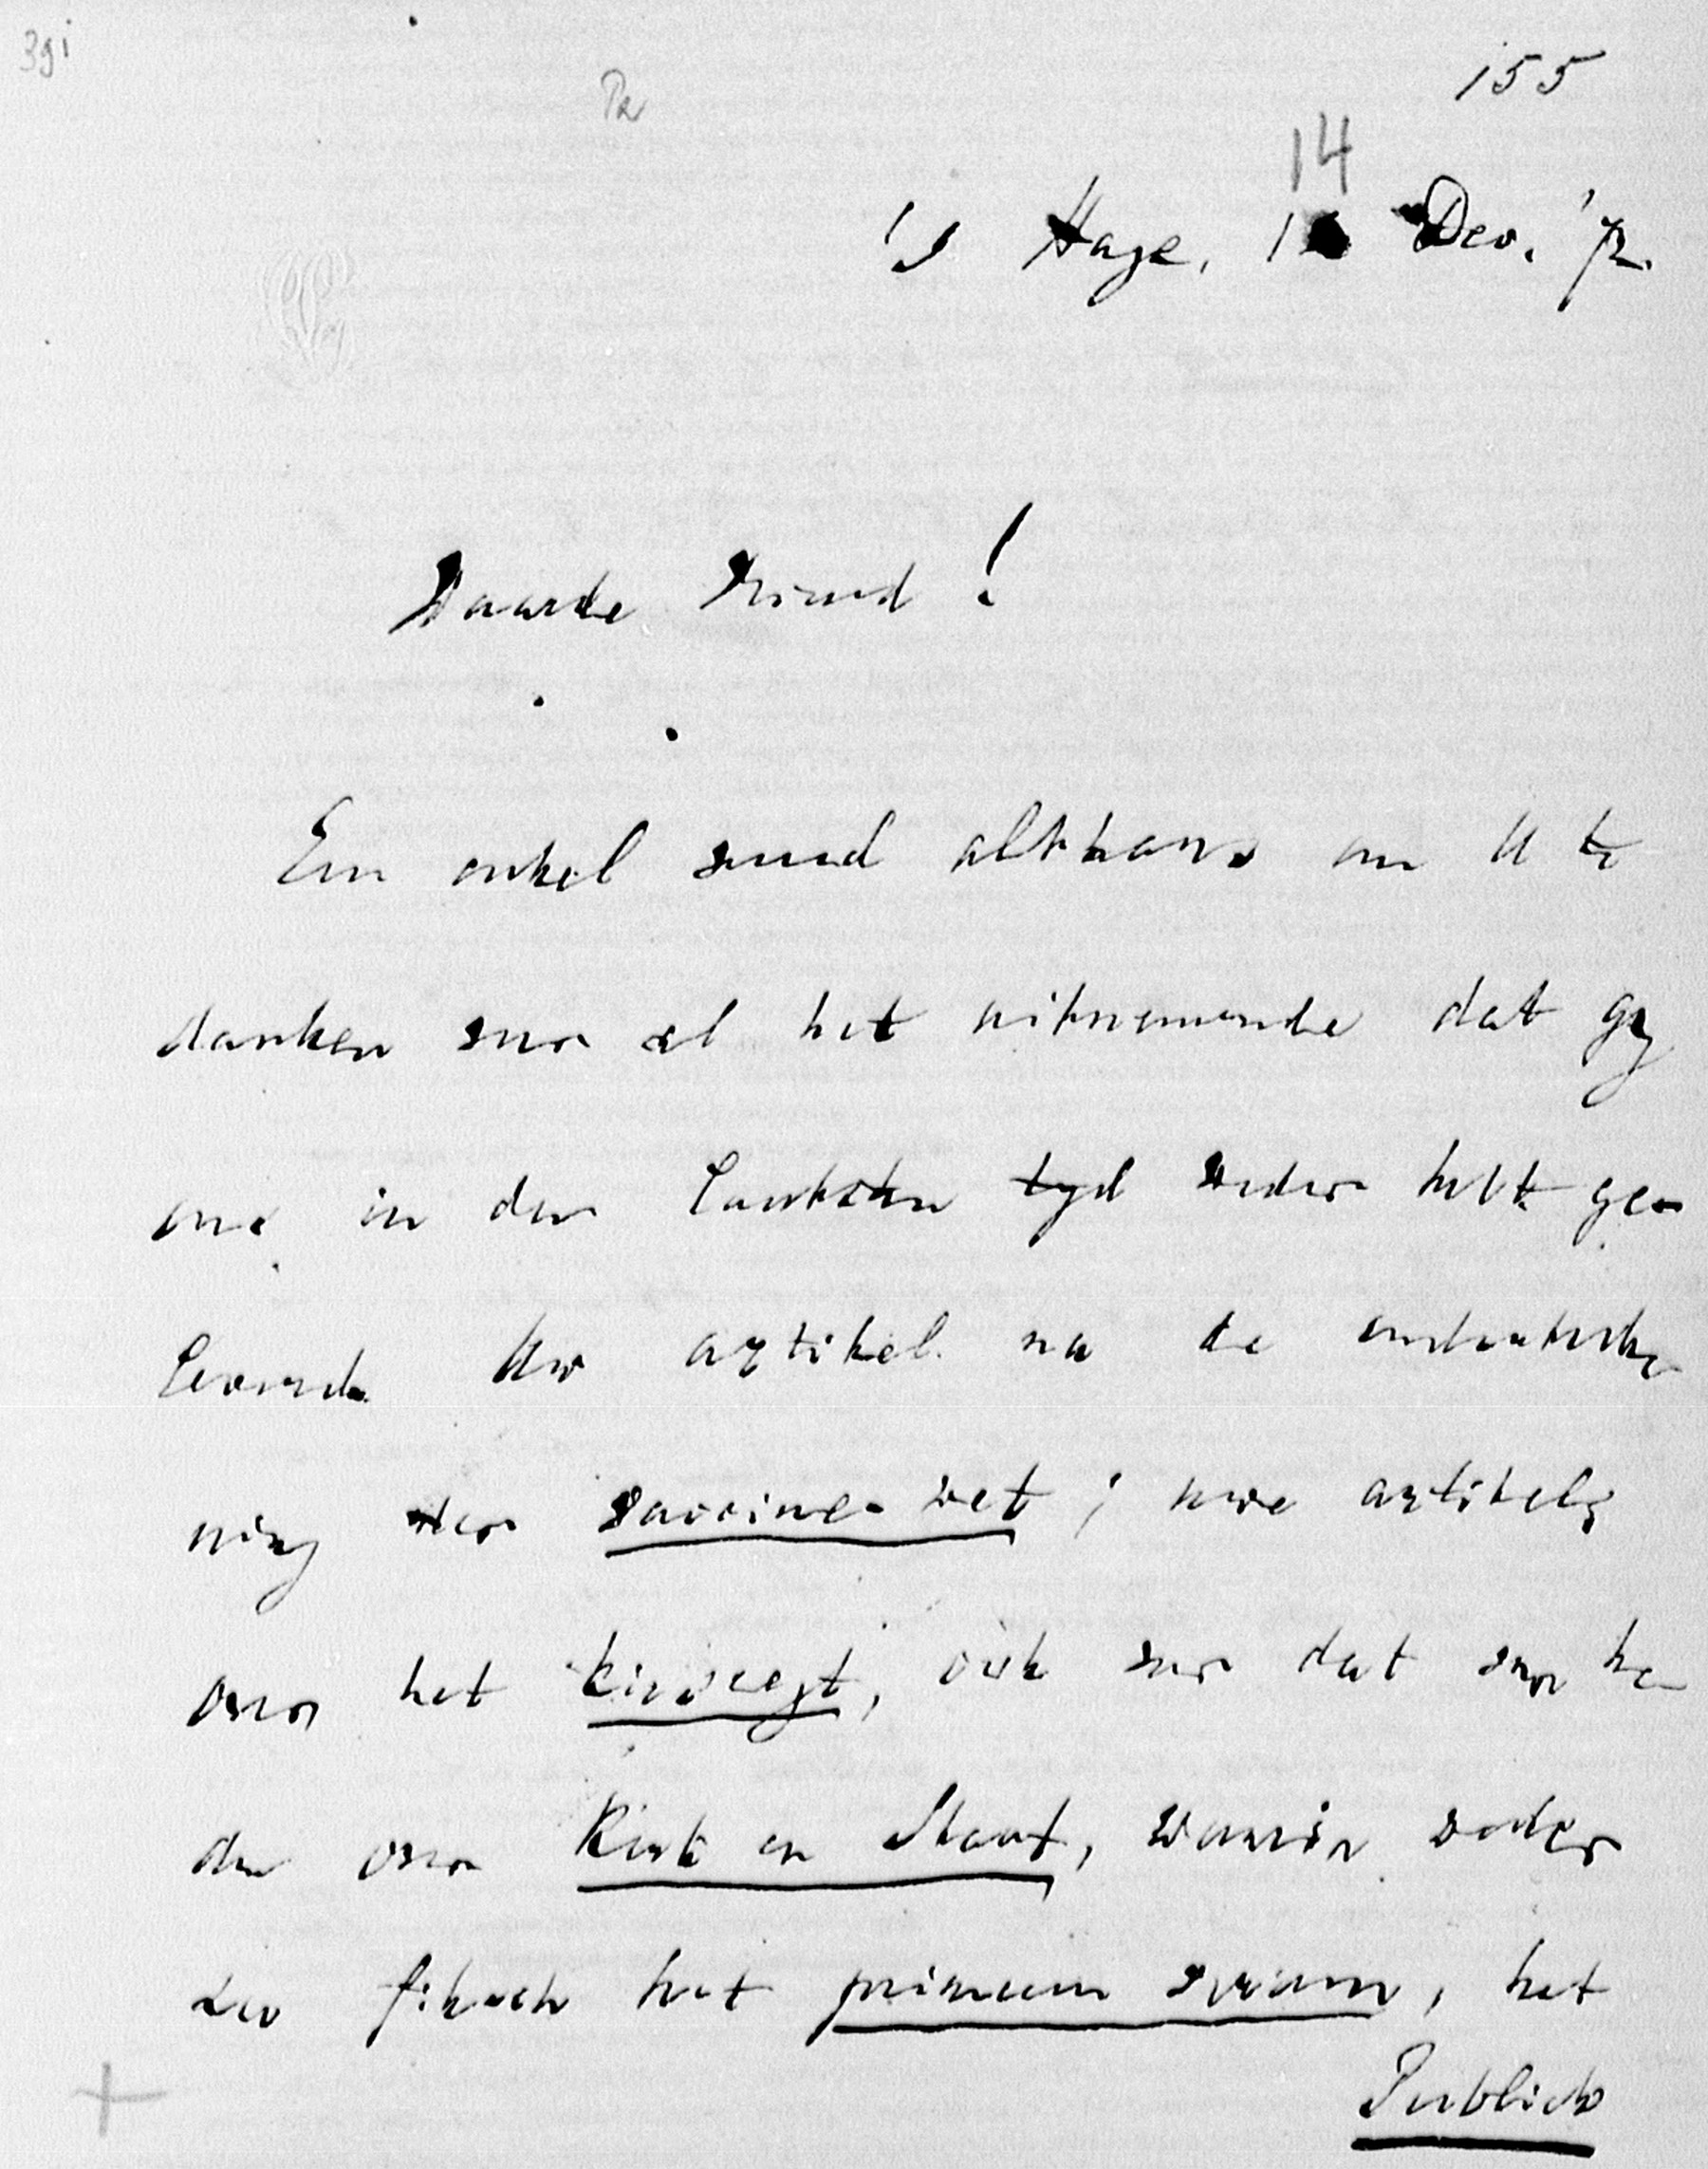 39i
155
14
's Hage, 1 Dec. '72.
Waarde Vriend!
Een enkel woord althans om U te
danken voor al het uitnemende dat gy
ons in den laatsten tyd weder hebt ge-
leverd. Uw artikel na de
ning der vaccine-wet; uwe artikels
over het kiesregt, ook voor dat over
den over Kerk en Staat, waarin
het primum verum, het
Publiek